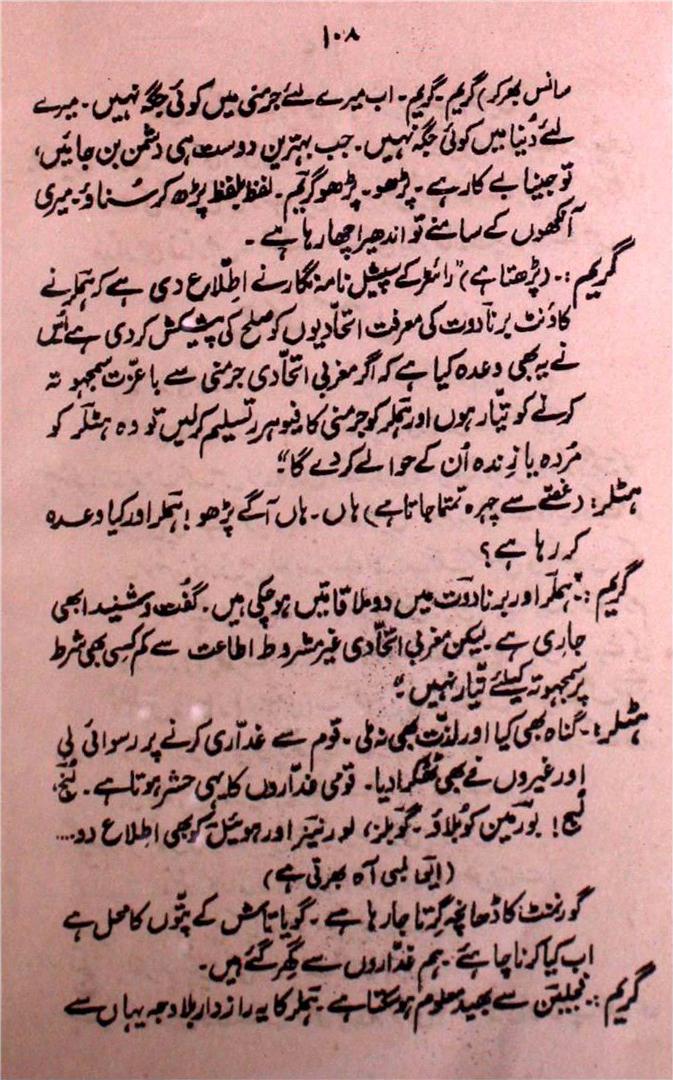 ۱۰۸
سانس بھر کر) گریم۔ گریم۔ اب میرے لئے جرمنی میں کوئی جگہ نہیں۔ میرے
لئے دُنیا میں کوئی جگہ نہیں۔ جب بہترین دوست ہی دشمن بن جائیں،
تو جینا بے کار ہے۔ پڑھو۔ پڑھو گریم۔ لفظ بلفظ پڑھ کر سُناؤ۔ میری
آنکھوں کے سامنے تو اندھیرا چھا رہا ہے۔
گریم:۔ (پڑھتا ہے) "رائٹر کے سپیشل نامہ نگار نے اطّلاع دی ہے کہ ہملر نے
کاؤنٹ برنادوت کی معرفت اتحّادیوں کو صلح کی پیشکش کر دی ہے اُس
نے یہ بھی وعدہ کیا ہے کہ اگر مغربی اتحّادی جرمنی سے باعزّت سمجھوتہ
کرنے کو تیّار ہوں اور ہملر کو جرمنی کا رفیوہرر تسلیم کر لیں تو وہ ہٹلر کو
مُردہ یا زندہ اُن کے حوالے کر دے گا"
ہٹلر:۔ (غصّے سے چہرہ تمتما جاتا ہے) ہاں۔ ہاں آگے پڑھو! ہملر اور کیا وعدہ
کر رہا ہے؟
گریم:۔ "ہملر اور برنادوت میں دو ملاقاتیں ہو چکی ہیں۔ گفت و شنید ابھی
جاری ہے۔ لیکن مغربی اتحّادی غیر مشروط اطاعت سے کم کسی بھی شرط
پر سمجھوتہ کیلئے تیّار نہیں"
ہٹلر:۔ گناہ بھی کیا اور لذّت بھی نہ ملی۔ قوم سے غدّاری کرنے پر رسوائی لی
اور غیروں نے بھی ٹھکرا دیا۔ قومی غدّاروں کا یہی حشر ہوتا ہے۔ لُنج،
لنج! بورمین کو بُلاؤ۔ گوبلز، لورنیز اور ہوئیل کو بھی اطلاع دو....
(اپنی لمبی آہ بھرتی ہے)
گورنمنٹ کا ڈھانچہ گرتا جا رہا ہے۔ گویا تاش کے پتّوں کا محل ہے
اب کیا کرنا چاہئے۔ ہم غدّاروں سے گھر گئے ہیں۔
گریم:۔ سے بھید معلوم ہو سکتا ہے۔ ہملر کا یہ رازدار بلاوجہ یہاں سے